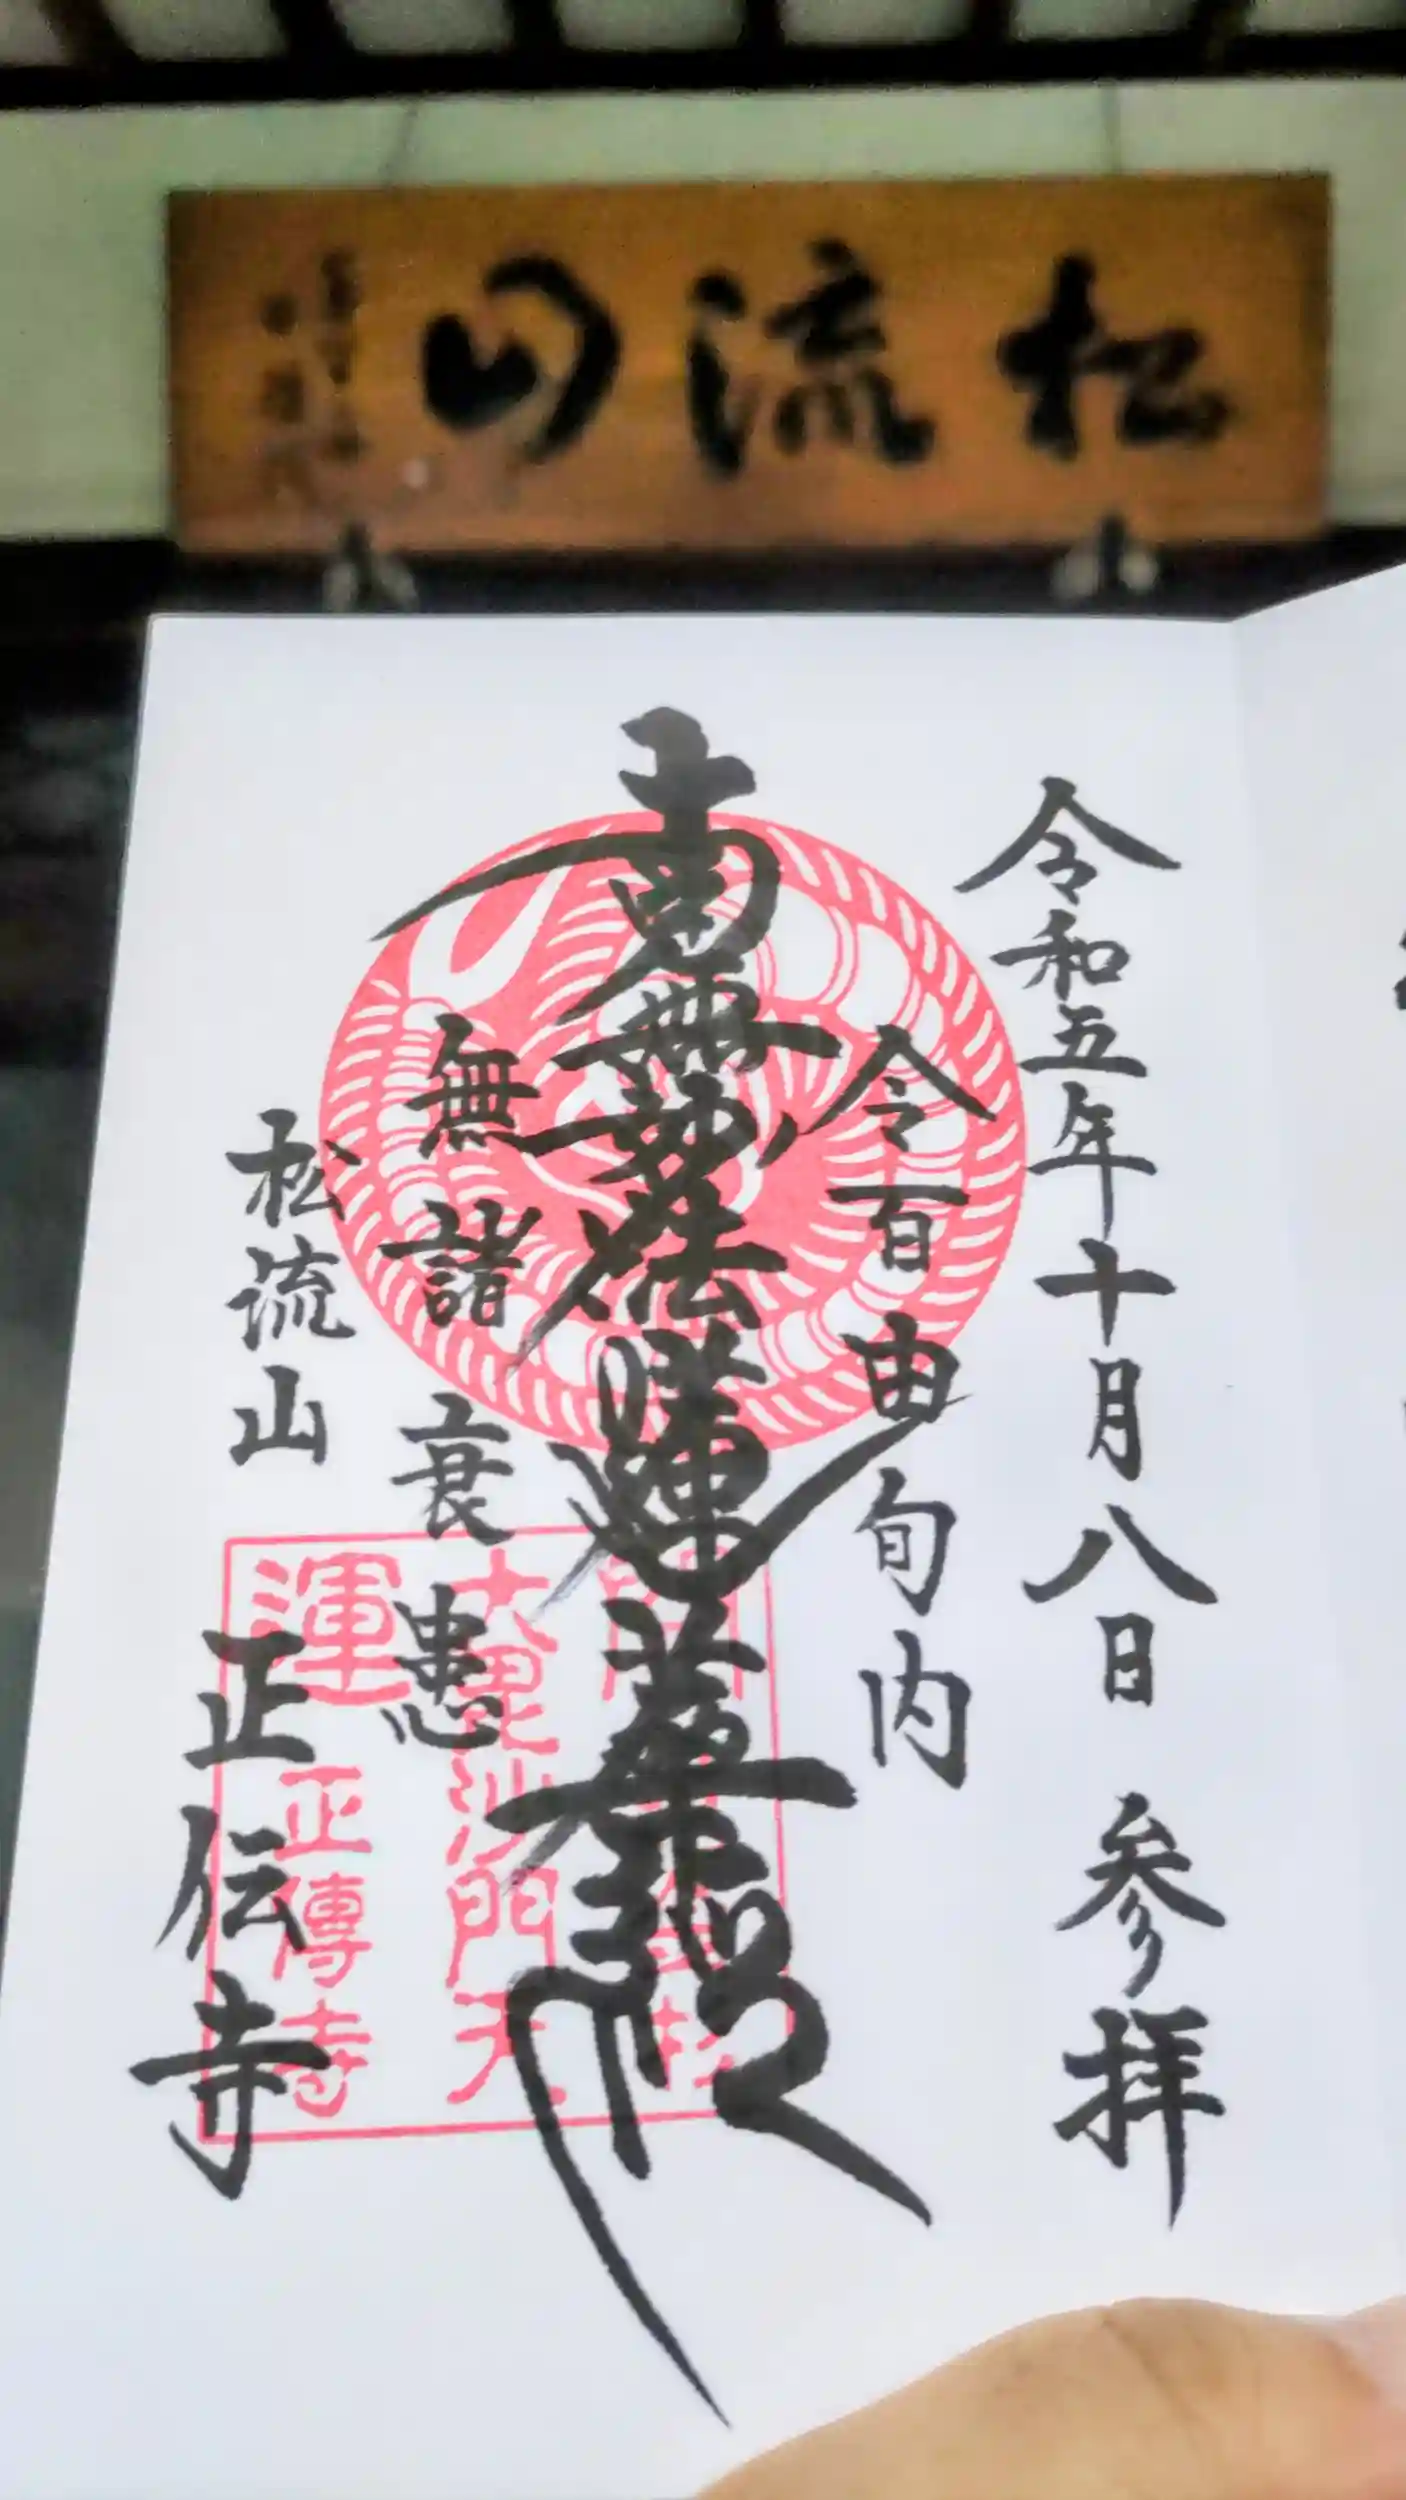 松流山
令和五年十月八日 参拝
令百由旬内
南無妙法蓮華経
無諸衰患
松流山 正伝寺
開運
大毘沙門天
正傳寺